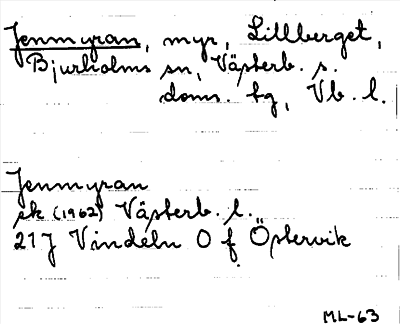 Jenmyran, myr, Lillberget,
Bjurholms sn, Västerb. s.
doms. hg, Vb. l.
Jenmyran
ek (1962) Västerb. l.
21J Vindeln O f Östervik
ML-63